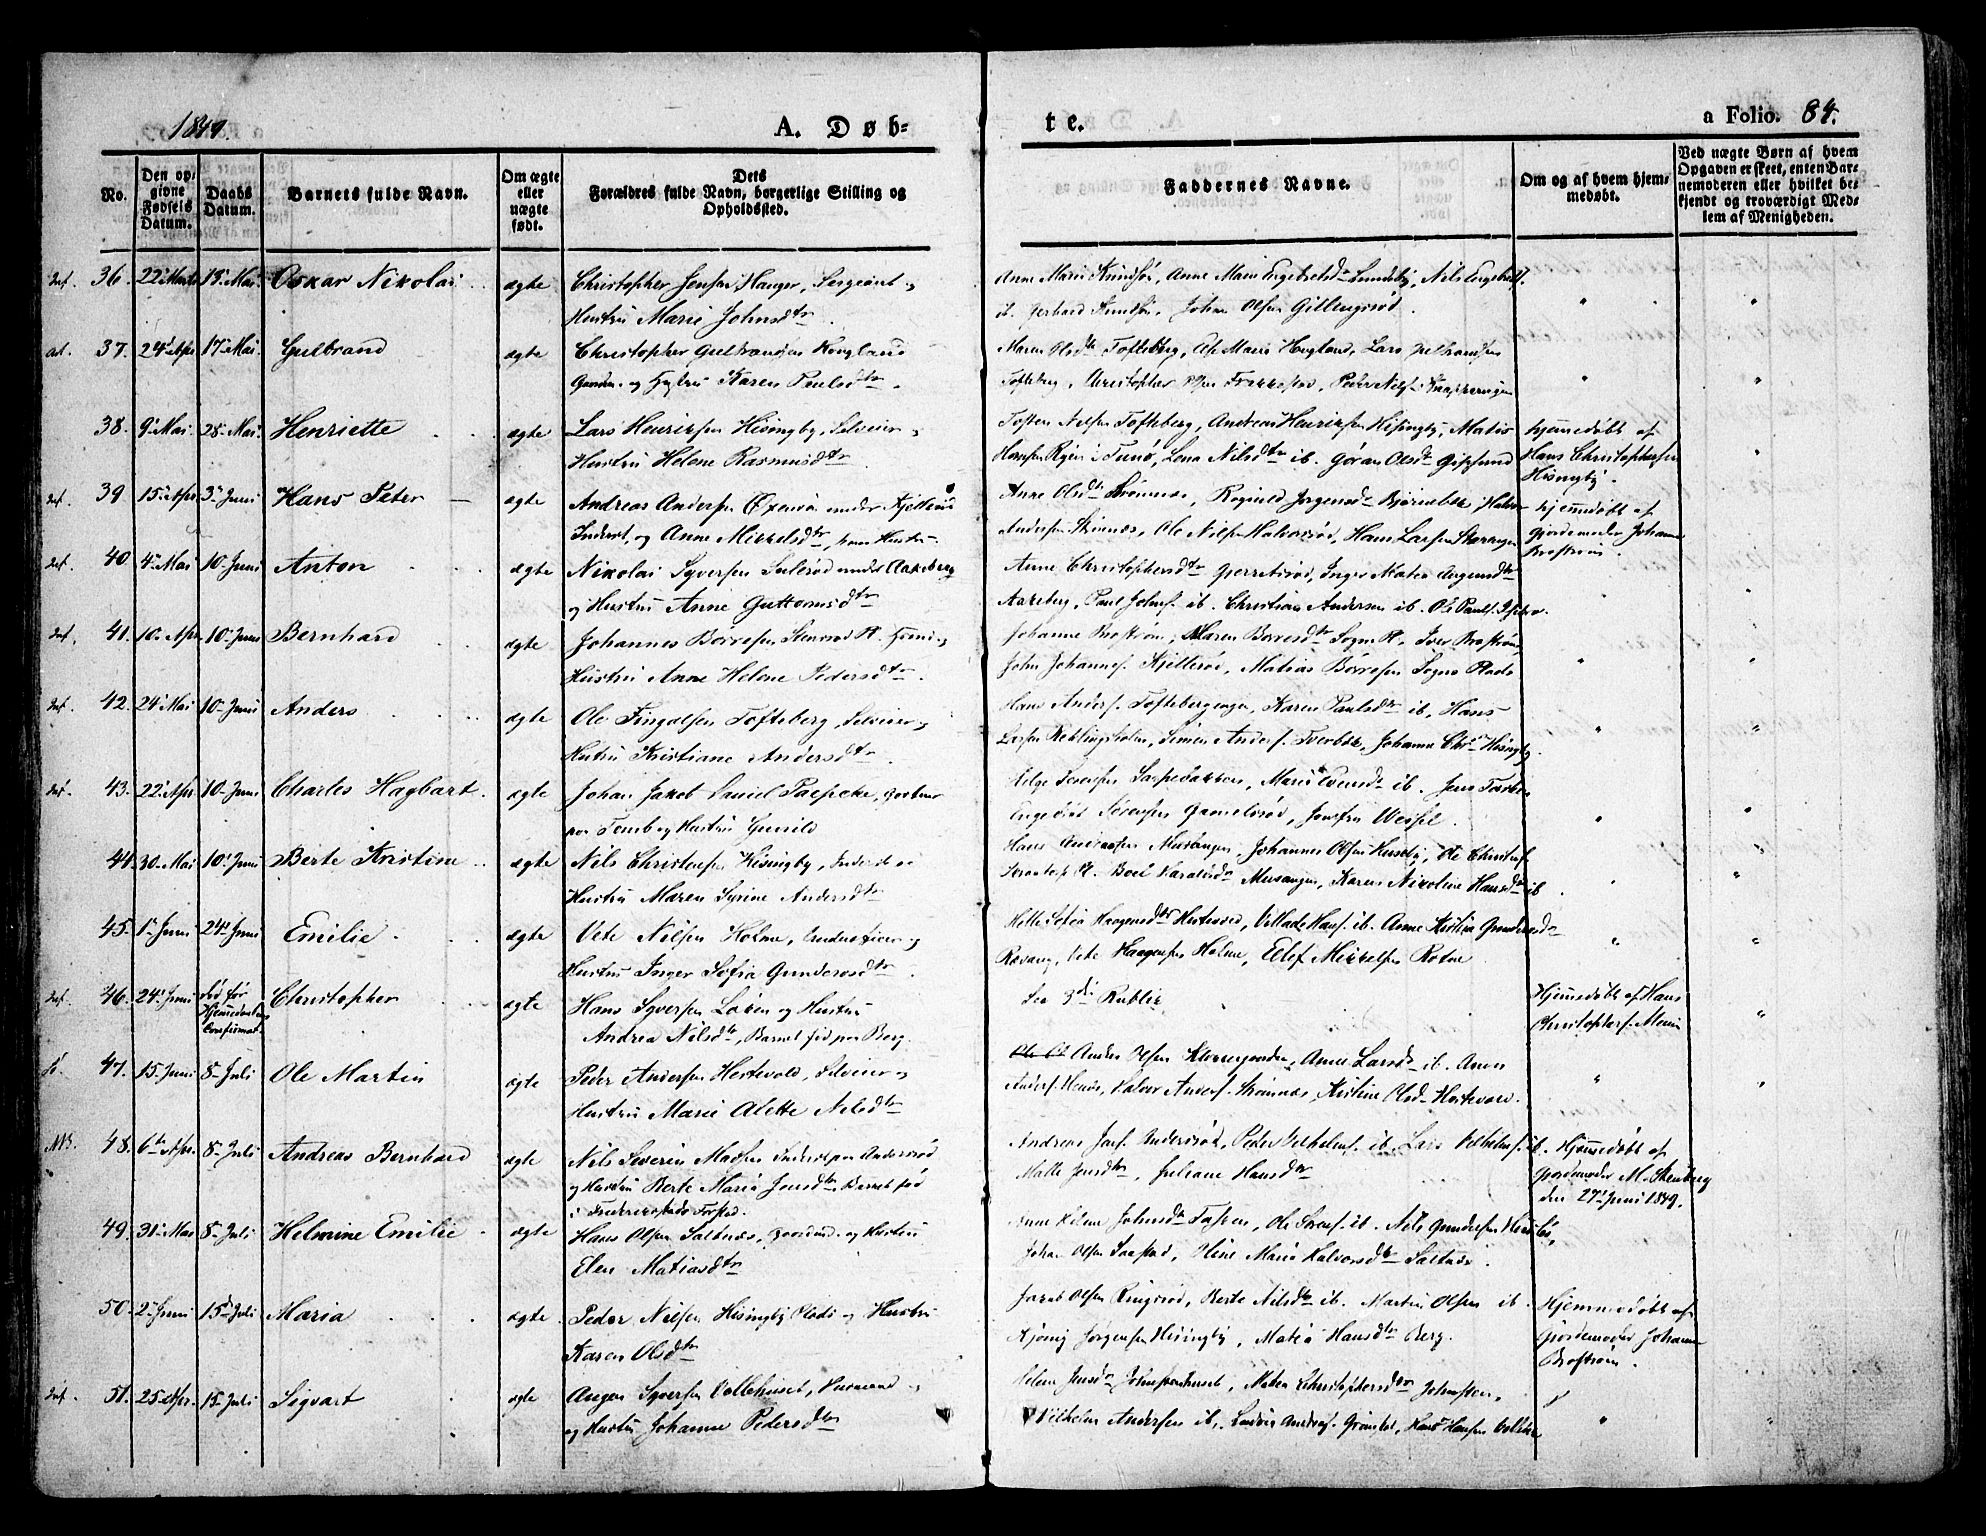 1849. A. Døb- te. a Folio. 84.
No. Den opgivne Fødsels Datum. Daabs Datum. Barnets fulde Navn. Om ægte eller uægte født. Dets Forældres fulde Navn, borgerlige Stilling og Opholdssted. Faddernes Navne. Om og af hvem hjemmedøbt. Ved uægte Børn af hvem Opgaven er skeet, enten Barnemoderen eller hvilket bekjendt og troværdigt Medlem af Menigheden.
36. 22 Marts 13 Mai. Oskar Nikolai ægte Christopher Jensen Hauger, Sergeant og
Hustru Marie Johnsdtr.
Anne Marie Knudsen, Anne Marie Engebretsdtr Lundeby, Nils Engebretsf.
ib. Gerhard Knudsen, Johan Olsen Gillungsrød.
37. 24 Apr 17 Mai. Gulbrand ægte Christopher Gulbrandsen Hougland
Gaardm. og Hustru Karen Paulsdtr.
Maren Olsdtr Tofteberg, Marie Hougland, Lars Gulbrandsen
Tofteberg, Christopher Olsen, Peder Nilsf.
38. 9 Mai. 28 Mai. Henriette ægte Lars Henriksen Hisingby, Selveier og
Hustru Helene Rasmusdtr.
Tosten Nilsen Tofteberg, Andreas Henriksen Hisingby, Matis
Hansen Rygin i Tunø, Lena Nilsdtr ib. Gøran Olsdtr Gipsund
Hjemmedøbt af
Hans Christophersen
Hisingby.
39 15 Apr 3 Juni Hans Peter ægte Andreas Andersen Øxenøen under Kjellerø
Inderst, og Anne Mikkelsdtr, hans Hustru.
Anne Olsdtr Strømnæs, Ragnild Jørgensdtr Bjørnebek, Halvor
Andersen Strømnæs, Ole Nielsen Halvorsrød, Hans Larsen
Hjemmedøbt af
Gjordemoder Johanne
Brostrøm.
40 4 Mai 10 Juni Anton ægte Nikolai Syversen Sulerød under Aakeberg
og Hustru Anne Guttormsdtr
Anne Christophersdtr, Inger Matea Aagensdtr
Aakeberg, Paul Johnsf. ib. Christian Andersen ib. Ole Paulsf.
41. 10 Apr 10 Juni Bernhard ægte Johannes Børresen Stensrød Pl. og
Hustru Anne Helene Pedersdtr.
Johanne Brostrøm, Maren Børresdtr Sogn Pl. Iver Brostrøm,
John Johannesf. Kjellerød, Matias Børresen Sogns Plads
42. 24 Mai 10 Juni Anders ægte Ole Fingalsen Tofteberg, Selveier og
Hustru Kristiane Andersdtr.
Hans Andersf. Toftebergengen, Karen Paulsdtr ib, Hans
Larsen Roklingsholm, Simen Andersf. Tverbek, Johanne Chr. Hisingby.
43. 22 Apr 10 Juni Charles Hagbart. ægte Johan Jakob Daniel Paepcke, Gartner
paa Tomb og Hustru Gunild
Helge Torersen Sarpebakken, Marie ib. Jens
Engebret Sørensen Gamelsrød, Jomfru Wessel.
44. 30 Mai 10 Juni Berte Kristine ægte Nils Christensen Hisingby, Inderst og
Hustru Maren Syrine Andersdtr
Hans Andreasen Musangen, Johannes Olsen Huseby, Ole Christensf.
Pl. Boel Haraldsdtr Musangen, Karen Nikoline Hansdtr ib.
45. 1 Juni 24 Juni Emilie. ægte Vete Nilsen Holme, Understeier og
Hustru Inger Sofia Gundersdtr.
Helle Sofia Haagensdtr Hestevold, Vellade Hansf. ib. Anne Kistina Gundersdtr
Rævang, Vete Haagensen Holme, Elef Mikkelsen Rotne.
46. 24 Juni død før Hjemmedaabens Confirmat. Christopher ægte Hans Syversen Løken og Hustru
Andrea Nilsdtr, Barnet fød paa Berg.
See 3die Rubrik
Hjemmedøbt af Hans
Christophersf. Moum
47. 15 Juni 8 Juli Ole Martin ægte Peder Andersen Hestevold, Selveier og
Hustru Marie Alette Nilsdtr
Anders Olsen, Anne Larsdtr ib. Aners
Andersf. Henøe, Halvor Andersf. Strømnæs, Kistine Olsd. Hestevold.
NB. 48. 6te Apr. 8 Juli Andreas Bernhard ægte Nils Severin Madsen Inderst paa Andersrød
og Hustru Berte Maria Jensdtr, Barnet fød
i Frederiksstads Forstad.
Andreas Jensf. Andersrød, Peder Vilhelmsf. ib. Lars Vilhelmsf. ib.
Malle Jensdtr, Juliane Hansdtr
Hjemmedøbt af
Gjordemoder M. Stenberg
den 27 Juni 1849.
49. 31 Mai 8 Juli Helmine Emilie ægte Hans Olsen Saltnes, Gaardmd. og Hustru
Elen Matiasdtr
Anne Helene Johnsdtr Tasken, Ole Torersf. ib. Nils Gundersen
Johan Olsen Saastad, Oline Maria Halvorsdtr Saltnæs.
50. 2 Juni 15 Juli Maria ægte. Peder Nilsen Hisingby Plads og Hustru
Karen Olsdtr
Jacob Olsen Ringsrød, Berte Nilsdtr ib. Martin Olsen ib.
Jørgensen Hisingby, Matea Hansdtr Berg.
Hjemmedøbt af
Gjordemoder Johanne
Brostrøm.
51. 25 Apr. 15 Juli Sigvart ægte Aagen Syversen Vollehuset, Huusmand
og Hustru Johanne Pedersdtr
Helene Jensdtr, Matea Christophersdtr Johnsten,
Vilhelm Andersen ib., Ludvig Andreasf. Grimstad, Hans Hansen